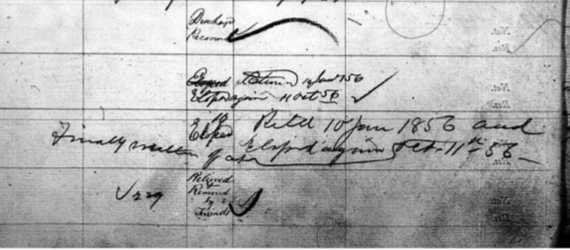 Discharged
Recovered
Eloped Returned 10 Jan 1856
Eloped again 11 Oct 56
Eloped Retd 10 Jan 1856 and
Finally written off as Eloped again Oct. 11th 56
Relieved
&
Removed
by
Friends